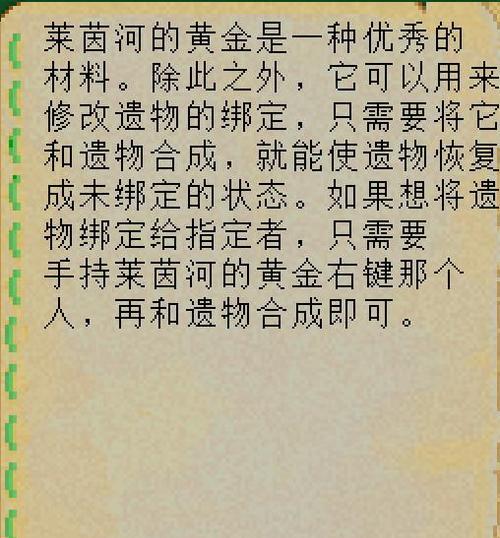 莱茵河的黄金是一种优秀的
材料。除此之外，它可以用来
修改遗物的绑定，只需要将它
和遗物合成，就能使遗物恢复
成未绑定的状态。如果想将遗
物绑定给指定者，只需要
手持莱茵河的黄金右键那个
人，再和遗物合成即可。